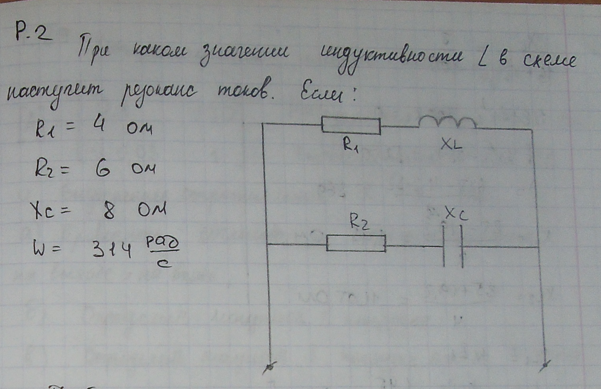 Р.2
При каком значении индуктивности L в схеме
наступит резонанс токов. Если:
R1 = 4 ом
R2 = 6 ом
Xc = 8 ом
W = 314 рад/с
R1
XL
R2
Xc